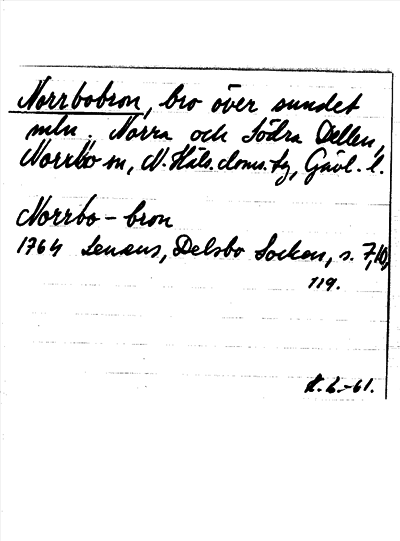 Norrbobron, bro över sundet
mln. Norra och Södra Dellen,
Norrbo sn, N. Häls. doms. tg, Gävl. l.
Norrbo-bron
1764 Lenæus, Delsbo Socken, s. 7, 10,
119.
K. L. -61.